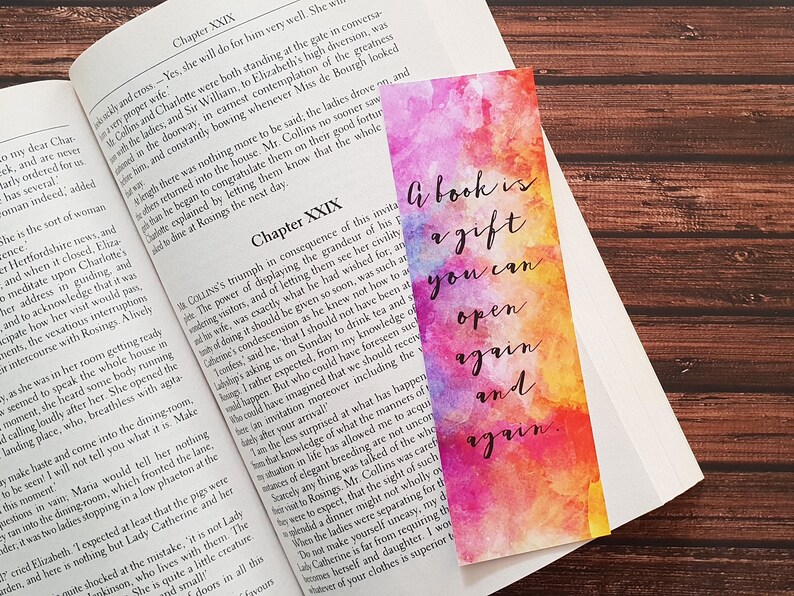 to my dear Char-
eek, and are never
larly ordered for us
has several.'
woman indeed', added
She is the sort of woman
Hertfordshire news, and
and when it closed, Eliza-
meditate upon Charlotte's
address in guiding, and
and to acknowledge that it was
icipate how her visit would pass,
ments, the vexatious interruptions
their intercourse with Rosings. A lively
as she was in her room getting ready
seemed to speak the whole house in
moment, she heard some body running
calling loudly after her. She opened the
landing place, who, breathless with agita-
make haste and come into the dining-room,
to be seen! I will not tell you what it is. Make
this moment.'
questions in vain; Maria would tell her nothing
ran into the dining-room, which fronted the lane,
it was two ladies stopping in a low phaeton at the
cried Elizabeth. 'I expected at least that the pigs were
garden, and here is nothing but Lady Catherine and her
quite shocked at the mistake, 'it is not Lady
Jenkinson, who lives with them. The
She is quite a little creature.
and small!'
of doors in all this
favours
Chapter XXIX
sickly and cross. — Yes, she will do for him very well. She will
a very proper wife.'
Mr. Collins and Charlotte were both standing at the gate in conversa-
with the ladies; and Sir William, to Elizabeth's high diversion, was
stationed in the doorway, in earnest contemplation of the greatness
before him, and constantly bowing whenever Miss de Bourgh looked
that way.
At length there was nothing more to be said; the ladies drove on, and
the others returned into the house. Mr. Collins no sooner saw
girls than he began to congratulate them on their good fortune,
Charlotte explained by letting them know that the whole
asked to dine at Rosings the next day.
Chapter XXIX
Mr. COLLINS's triumph in consequence of this invita
plete. The power of displaying the grandeur of his p
wondering visitors, and of letting them see her civility
and his wife, was exactly what he had wished for;
tunity of doing it should be given so soon, was such an
Catherine's condescension as he knew not how to
'I confess,' said he, 'that I should not have been
Ladyship's asking us on Sunday to drink tea and
Rosings. I rather expected, from my knowledge
would happen. But who could have foreseen such
Who could have imagined that we should receive
(an invitation moreover including the
diately after your arrival!'
'I am the less surprised at what has happened
from that knowledge of what the manners of
my situation in life has allowed me to acquire
instances of elegant breeding are not uncom
Scarcely any thing was talked of the whole
their visit to Rosings. Mr. Collins was care
they were to expect, that the sight of such
splendid a dinner might not wholly
When the ladies were separating for
'Do not make yourself uneasy, my
Lady Catherine is far from requiring
becomes herself and daughter. I wo
whatever of your clothes is superior
A book is
a gift
you can
open
again
and
again.